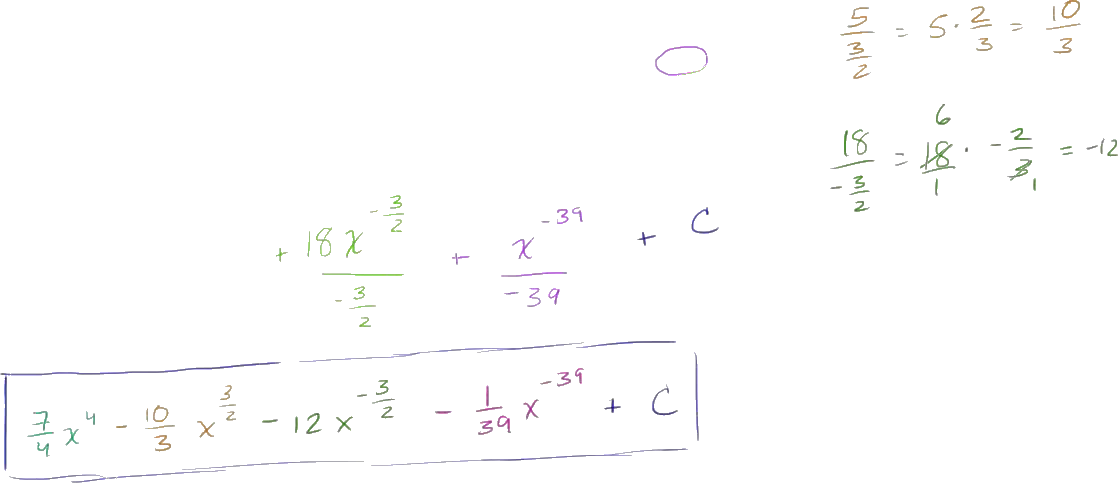 5/(3/2) = 5 · 2/3 = 10/3
6
18/(-3/2) = 18/1 · -2/3 = -12
1
+ 18x^(-3/2)/(-3/2) + x^(-39)/(-39) + C
7/4 x^4 - 10/3 x^(3/2) - 12x^(-3/2) - 1/39 x^(-39) + C